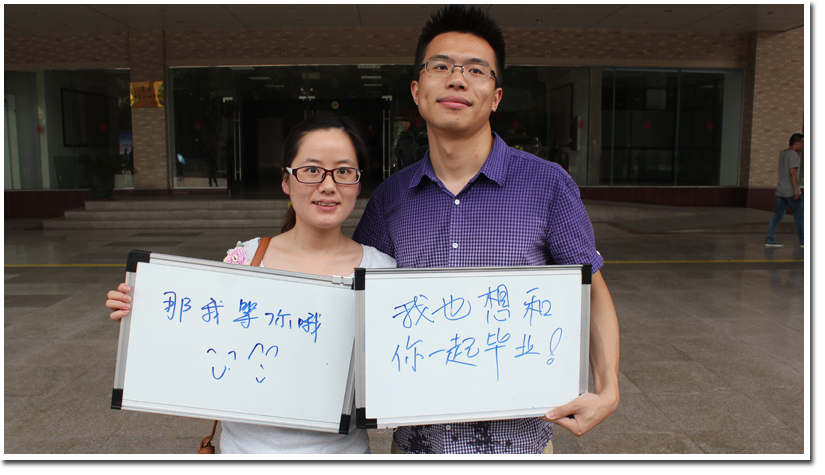 那我等你哦
我也想和
你一起毕业!